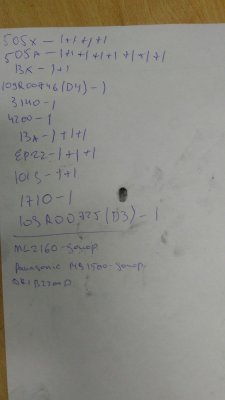 505X - 1+1+1+1
505A - 1+1+1+1+1+1+1+1
13X - 1+1
109R00746(D4) - 1
3140 - 1
4200 - 1
13A - 1+1+1
EP22 - 1+1+1
101S - 1+1
1710 - 1
109R00725(D3) - 1
ML2160 - донор
Panasonic MB1500 - донор